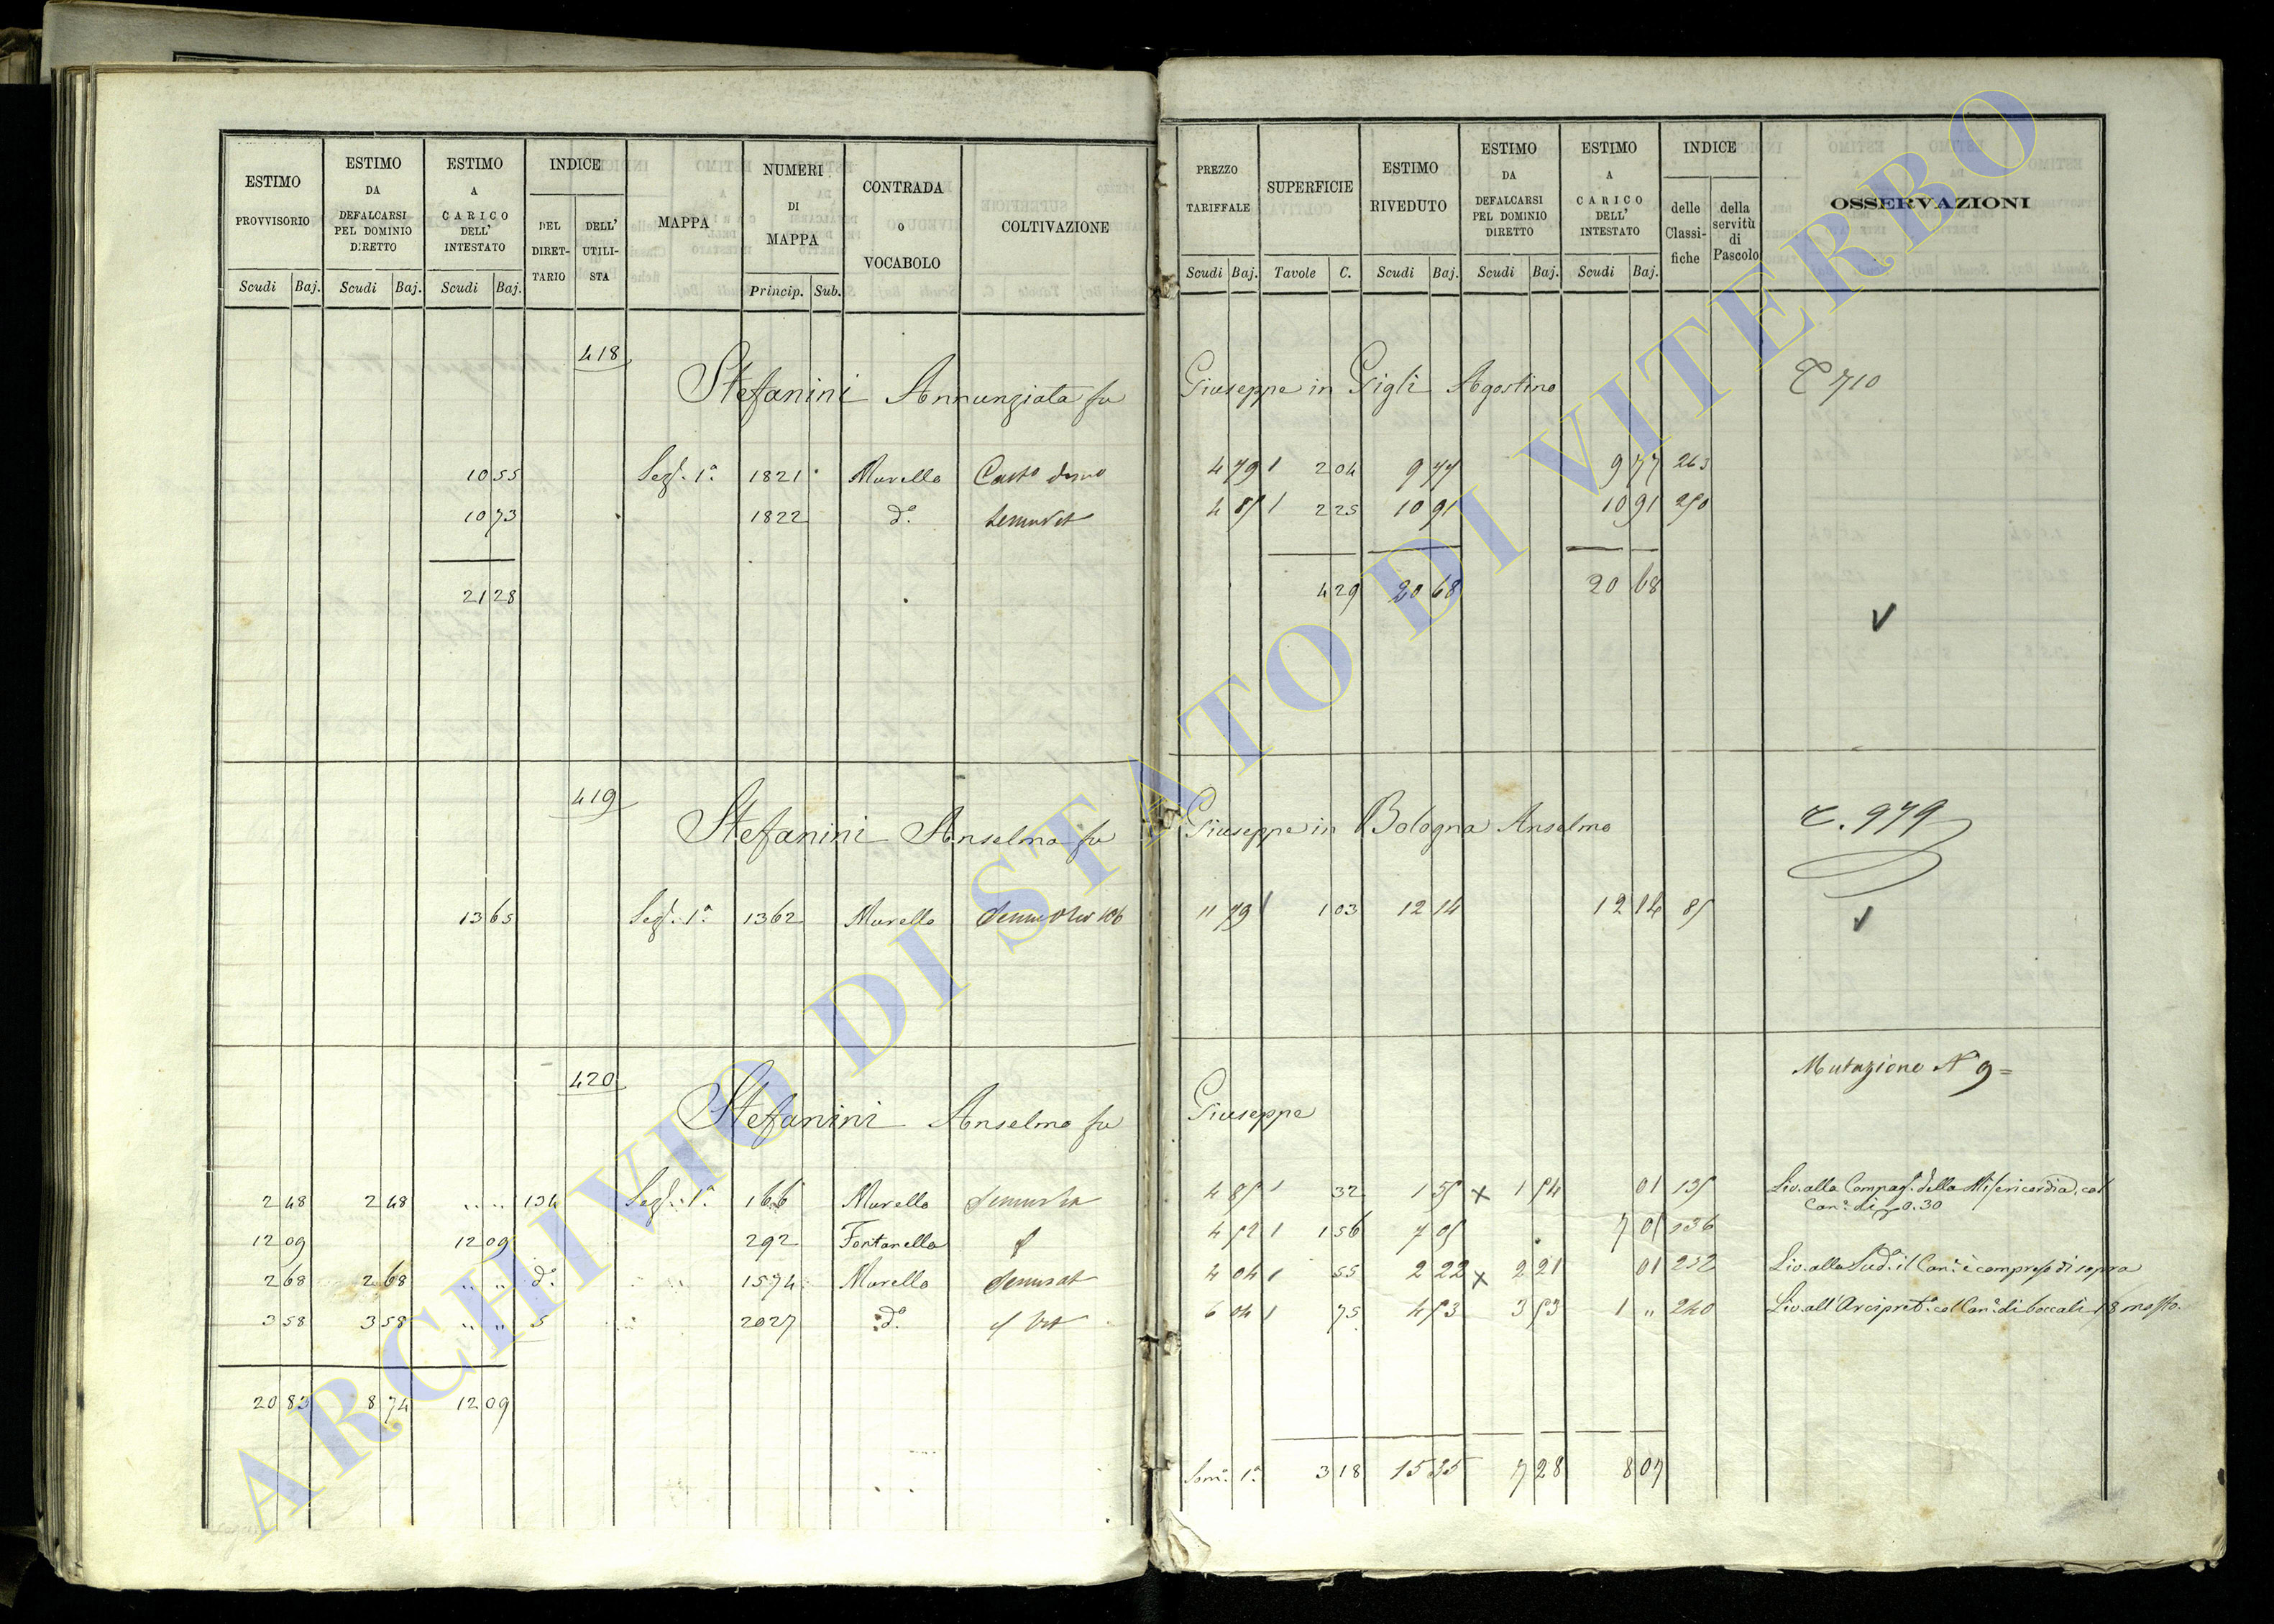 ESTIMO PROVVISORIO Scudi Baj.
ESTIMO DA DEFALCARSI PEL DOMINIO DIRETTO Scudi Baj.
ESTIMO A CARICO DELL' INTESTATO Scudi Baj.
INDICE DEL DIRETTARIO DELL' UTILISTA
MAPPA
NUMERI DI MAPPA Princip. Sub.
CONTRADA o VOCABOLO
COLTIVAZIONE
PREZZO TARIFFALE Scudi Baj.
SUPERFICIE Tavole C.
ESTIMO RIVEDUTO Scudi Baj.
ESTIMO DA DEFALCARSI PEL DOMINIO DIRETTO Scudi Baj.
ESTIMO A CARICO DELL' INTESTATO Scudi Baj.
INDICE delle Classifiche della servitù di Pascolo
OSSERVAZIONI
418
Stefanini Annunziata fu Giuseppe in Gigli Agostino 710
10 55 Sez. 1ª 1821 Murello 4 79 2 04 9 77 9 77 263
10 73 1822 dº 2 25 10 91 10 91
21 28 4 29 20 68 20 68
419
Stefanini Anselma fu Giuseppe in Bologna Anselmo 979
13 65 Sez. 1ª 1362 Murello 11 79 1 03 12 14 12 14
420
Mutazione Nº 9=
Stefanini Anselmo fu Giuseppe
2 48 2 48 " " 134 Sez. 1ª 166 Murello 32 01 Liv. alla Compag. della Misericordia, col
Canº di 0.30
12 09 12 09 292 Fontanella 1 56 136
2 68 2 68 " " dº 1574 Murello 4 04 55 2 22 2 21 01 232 Liv. alla Sudª il Canº è compreso di sopra
3 58 3 58 " " 5 2027 dº 6 04 75 1 " 240 Liv. all'Arcipretª col Canº di boccali 18 mosto.
20 83 8 74 12 09
Somª 1ª 3 18 15 35 7 28 8 07
ARCHIVIO DI STATO DI VITERBO